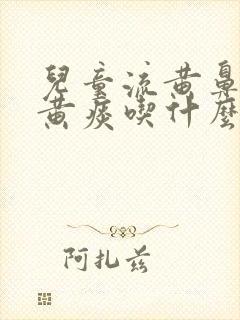 兒童流黃鼻
黃痰喫什麼
阿扎兹